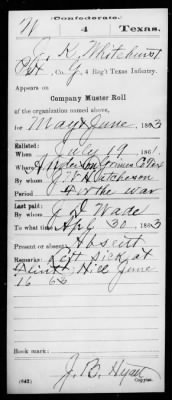 Confederate.
W 4 Texas.
E. K. Whitehurst
Pvt, Co. G, 4 Reg't Texas Infantry.
Appears on
Company Muster Roll
of the organization named above,
for May & June, 1863
Enlisted:
When July 19, 1861.
Where Anderson Grimes Co Tex
By whom J. W. Hutcheson
Period for the war
Last paid:
By whom J. D. Wade
To what time Apr 30, 1863
Present or absent Absent
Remarks: Left sick at
Flint Hill June
16 63
Book mark:
(642) J. B. Hyatt
Copyist.